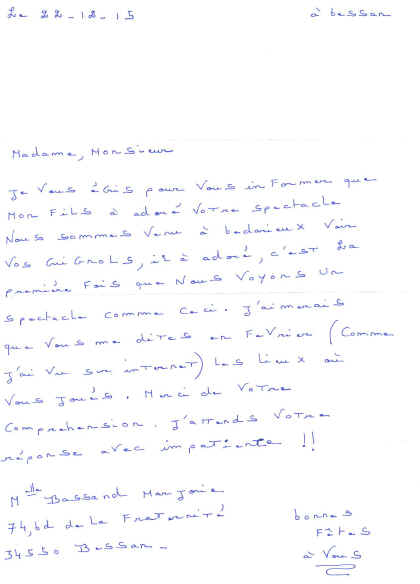 Le 22-12-15 à bessan
Madame, Monsieur
Je vous écris pour vous informer que
mon fils à adoré votre spectacle
Nous sommes venu à bedarieux voir
vos GuiGnoLs, il à adoré, c'est La
première fois que nous voyons un
spectacle comme ceci. J'aimerais
que vous me dites en Fevrier (comme
j'ai vu sur internet) les lieux où
vous joués. Merci de votre
comprehension. J'attends votre
réponse avec impatiente !!
Melle Bassand Marjorie
74, bd de La Fraternité bonnes
34550 Bessan - Fêtes
à vous